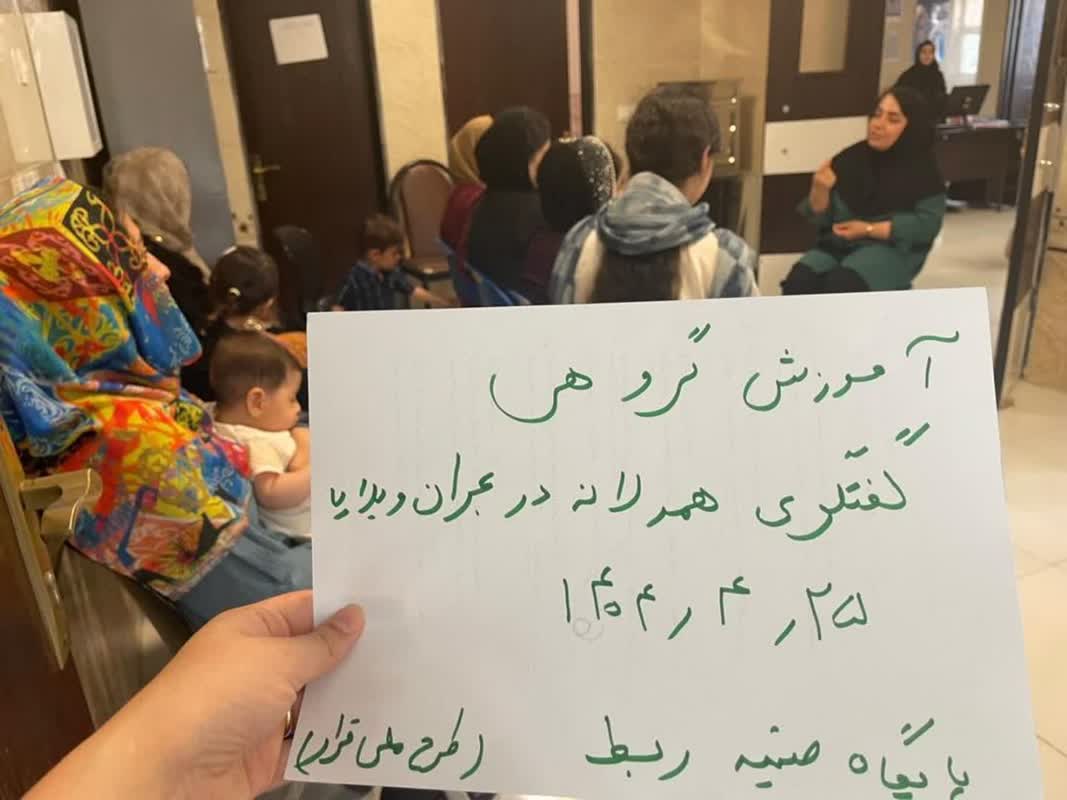 آموزش گروهی
گفتگوی همدلانه در بحران و بلایا
۲۵ ر ۴ ر ۱۴۰۴
پایگاه ضمیمه ربط (طرح ملی قرار)